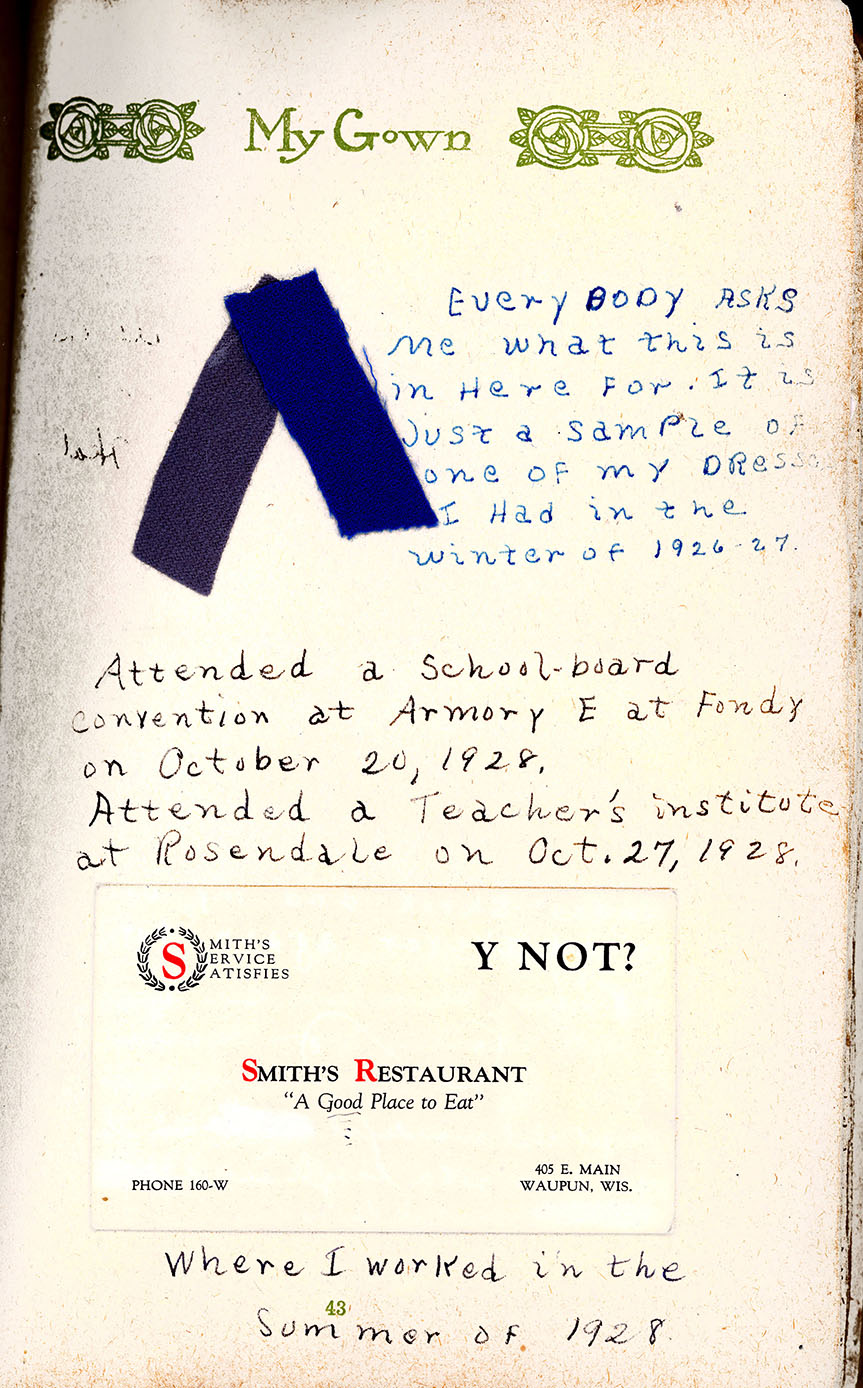 My Gown
EveryBODY ASKS
me what this is
in Here For. It is
Just a sample of
one of my
I Had in the
winter of 1926-27.
Attended a School-board
convention at Armory E at Fondy
on October 20, 1928.
Attended a Teacher's institute
at Rosendale on Oct. 27, 1928.
SMITH'S
SERVICE
SATISFIES
Y NOT?
SMITH'S RESTAURANT
"A Good Place to Eat"
PHONE 160-W
405 E. MAIN
WAUPUN, WIS.
Where I worked in the
43
Summer of 1928.